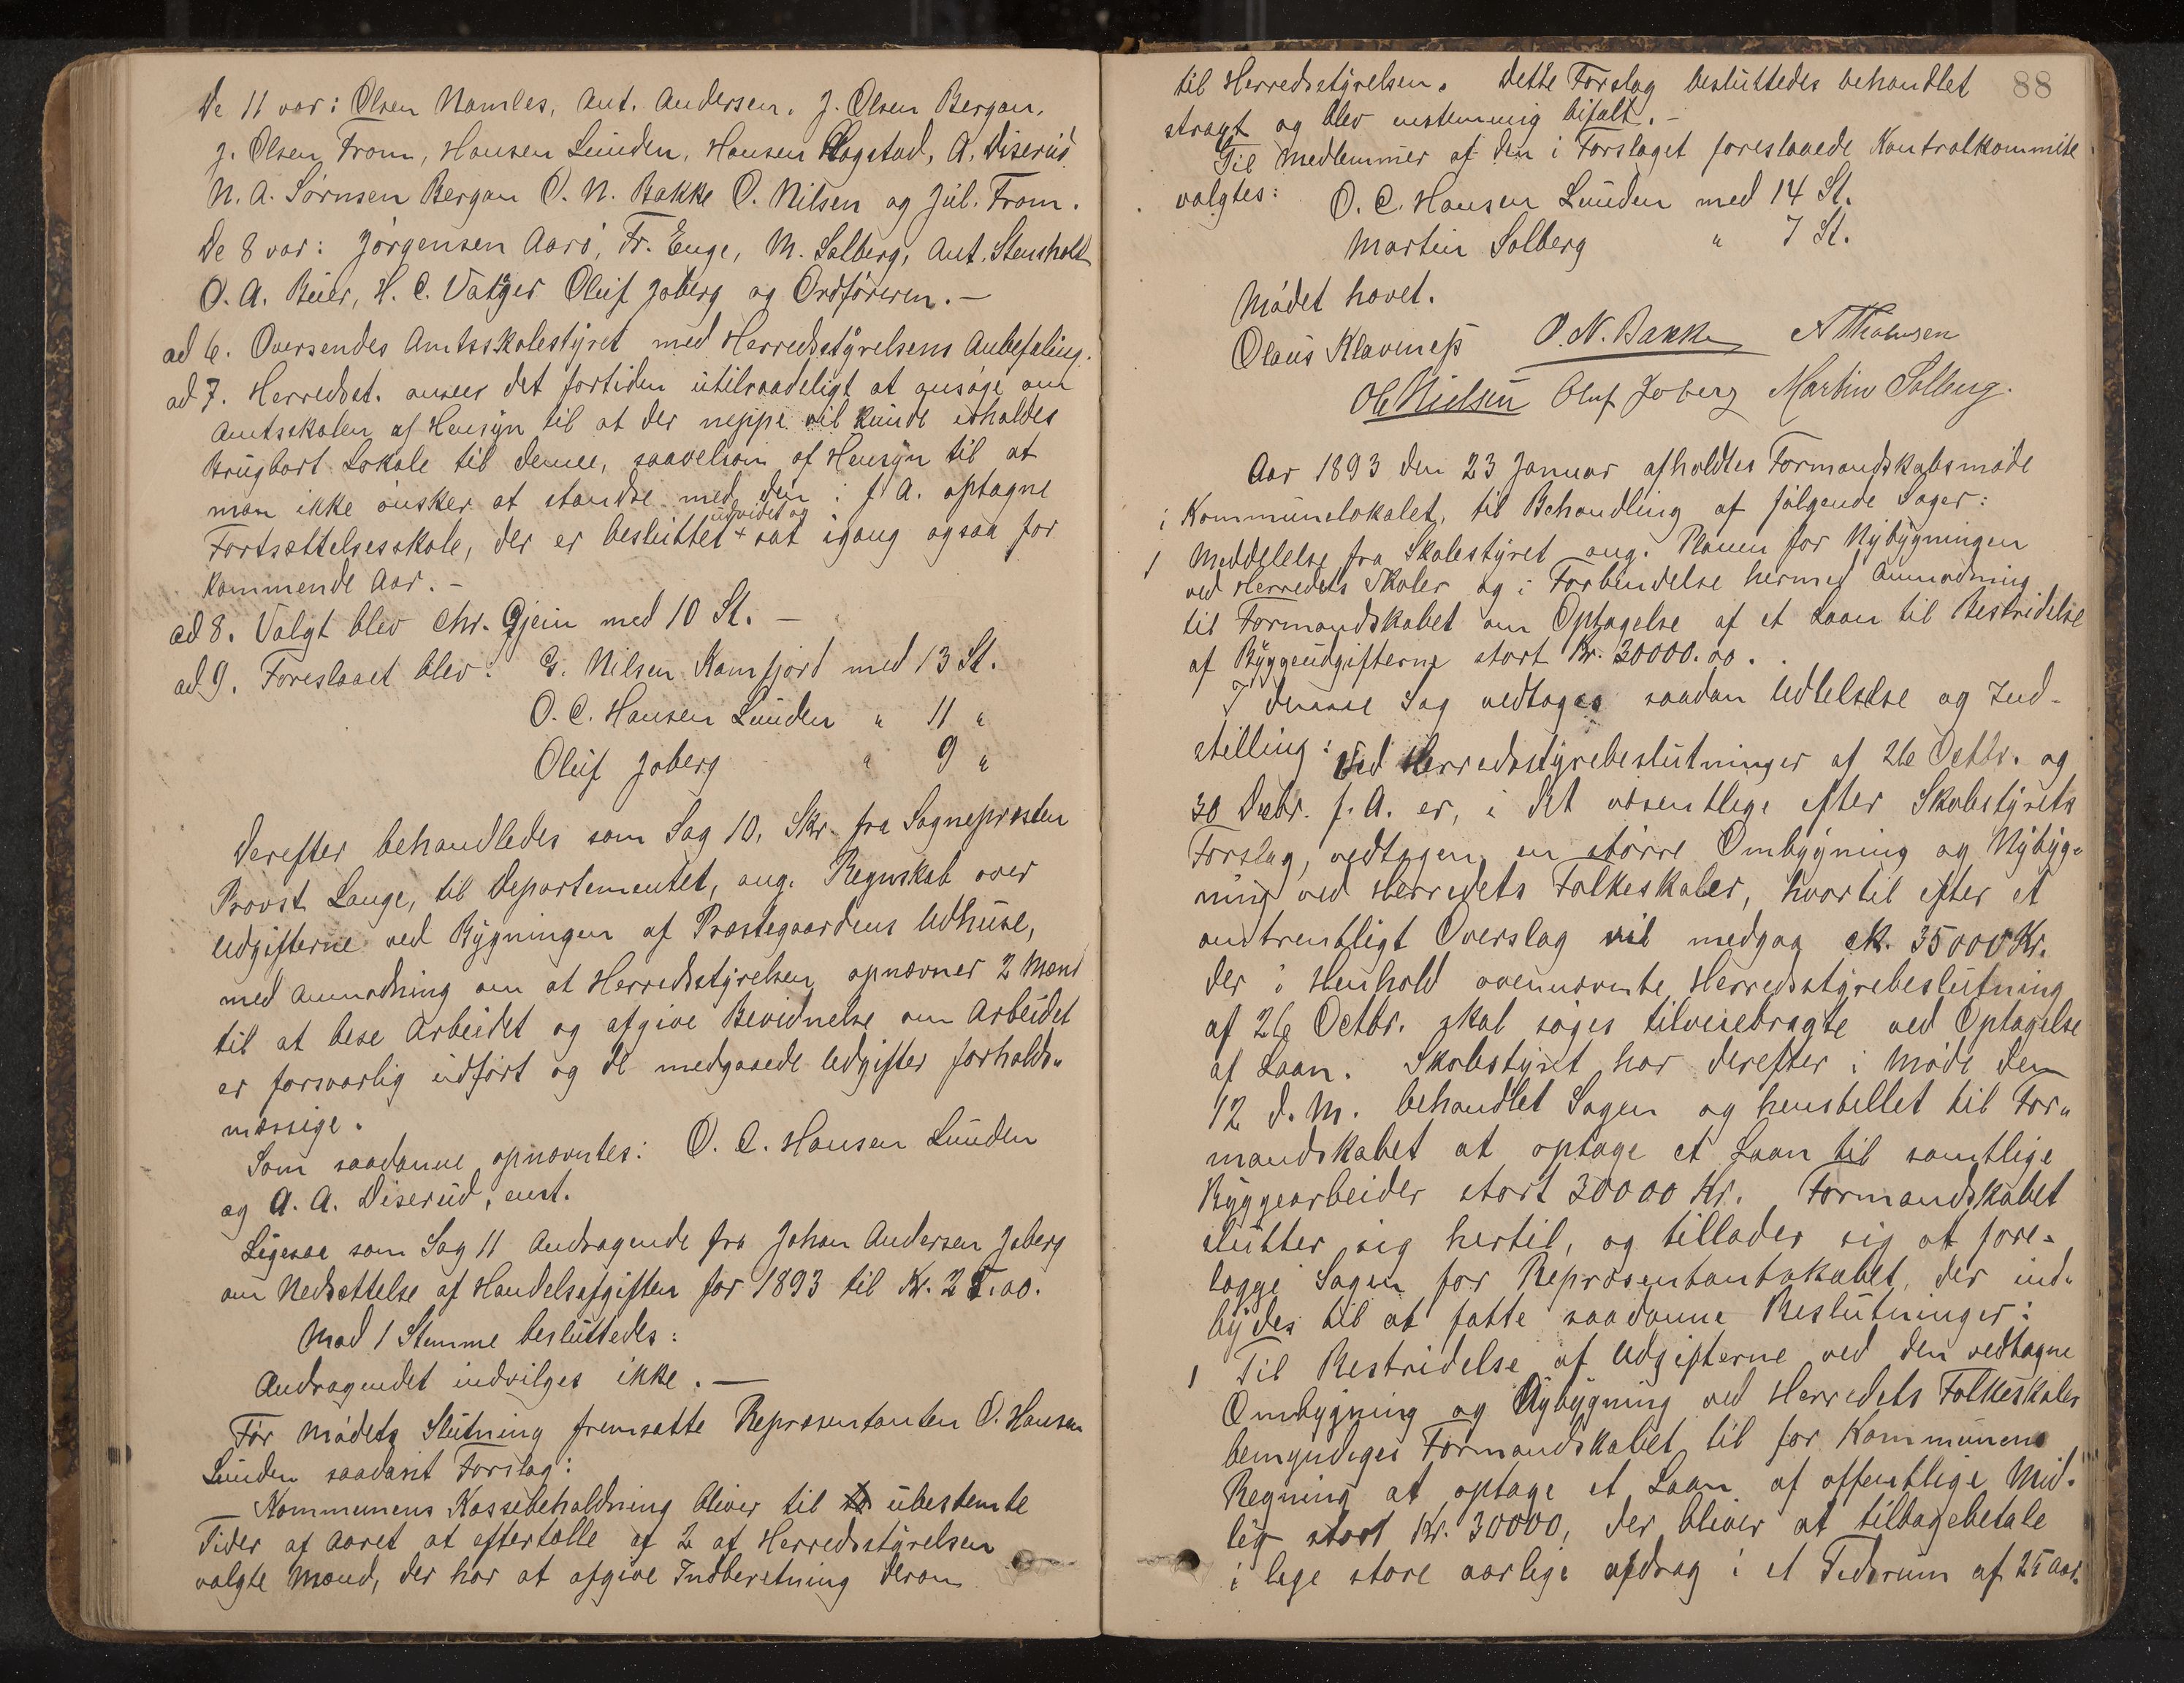 De 11 var: Olsen Namløs, Ant. Andersen, J. Olsen Bergan,
J. Olsen From, Hansen Lunden, Hansen Hagstad, A. Diserud
N. A. Sörnsen Bergan O. N. Bakke O. Nilsen og Jul. From.
De 8 var: Jörgensen Aarö, Fr. Enge, M. Solberg, Ant. Stensholt
O. A. Buer, H. C. Oluf Joberg og Ordföreren. —
ad 6. Oversendes Amtsskolestyret med Herredsstyrelsens Anbefaling.
ad 7. Herredsst. anser det fortiden utilraadeligt at ansöge om
Amtsskolen af Hensyn til at der neppe vil kunde erholdes
Brugbart Lokale til denne, saavelsom af Hensyn til at
man ikke önsker at standse med den i f. A. optagne
udvidet og
Fortsættelsesskole, der er besluttet + sat igang ogsaa for
kommende Aar. —
ad 8. Valgt blev Chr. Gjein med 10 St. —
ad 9. Foreslaaet blev: G. Nilsen Kamfjord med 13 St.
O. C. Hansen Lunden " 11 "
Oluf Joberg " 9 "
Derefter behandledes som Sag 10. Skr. fra Sognepresten
Provst Lange, til Departementet, ang. Regnskab over
Udgifterne ved Bygningen af Præstegaardens Udhuse,
med Anmodning om at Herredsstyrelsen opnævner 2 Mænd
til at bese Arbeidet og afgive Bevidnelse om Arbeidet
er forsvarlig udfört og de medgaaede Udgifter forholds„
mæssige.
Som saadanne opnævntes: O. C. Hansen Lunden
og A. A. Diserud, enst.
Ligesaa som Sag 11 Andragende fra Johan Andersen Joberg
om Nedsættelse af Handelsafgiften for 1893 til Kr. 25.00.
Mod 1 Stemme besluttedes:
Andragendet indvilges ikke. —
För Mödets Slutning fremsatte Repræsentanten O. Hansen
Lunden saadant Forslag:
Kommunens Kassebeholdning bliver til ubestemte
Tider af Aaret at eftertælle af 2 af Herredsstyrelsen
valgte Mænd, der har at afgive Indberetning derom
88
til Herredsstyrelsen. Dette Forslag besluttedes behandlet
stragt og blev enstemmig bifalt. —
Til Medlemmer af den i Forslaget foreslaaede Kontrolkommite
valgtes: O. C. Hansen Lunden med 14 St.
Martin Solberg " 7 St.
Mödet hævet.
Olaus Klavenes O. N. Bakke
Ole Nielsen Oluf Joberg Martin Solberg.
Aar 1893 den 23 Januar afholdtes Formandskabsmöde
i Kommunelokalet, til Behandling af fölgende Sager:
1 Meddelelse fra Skolestyret ang. Planen for Nybygningen
ved Herredets Skoler og i Forbindelse hermed Anmodning
til Formandskabet om Optagelse af et Laan til Bestridelse
af Byggeudgifterne stort Kr. 30000.00.
I denne Sag vedtoges saadan Udtalelse og Ind-
stilling: Ved Herredsstyrebeslutninger af 26 Octbr. og
30 Decbr. f. A. er, i det væsentlige efter Skolestyrets
Forslag, vedtagen en större Ombygning og Nybyg-
ning ved Herredets Folkeskoler, hvortil efter et
omtrentligt Overslag vil medgaa ck. 35000 Kr.
der i Henhold ovennævnte Herredsstyrebeslutning
af 26 Octbr. skal söges tilveiebragte ved Optagelse
af Laan. Skolestyret har derefter i Möde den
12 d. M. behandlet Sagen og henstillet til For„
mandskabet at optage et Laan til samtlige
Byggearbeider stort 30000 Kr. Formandskabet
slutter sig hertil, og tillader sig at fore-
lægge Sagen for Repræsentantskabet, der ind„
bydes til at fatte saadanne Beslutninger:
1 Til Bestridelse af Udgifterne ved den vedtagne
Ombygning og Nybygning ved Herredets Folkeskoler
bemyndiges Formandskabet til for Kommunens
Regning at optage et Laan af offentlige Mid-
ler stort Kr. 30000, der bliver at tilbagebetale
i lige store aarlige afdrag i et Tidsrum af 25 Aar.